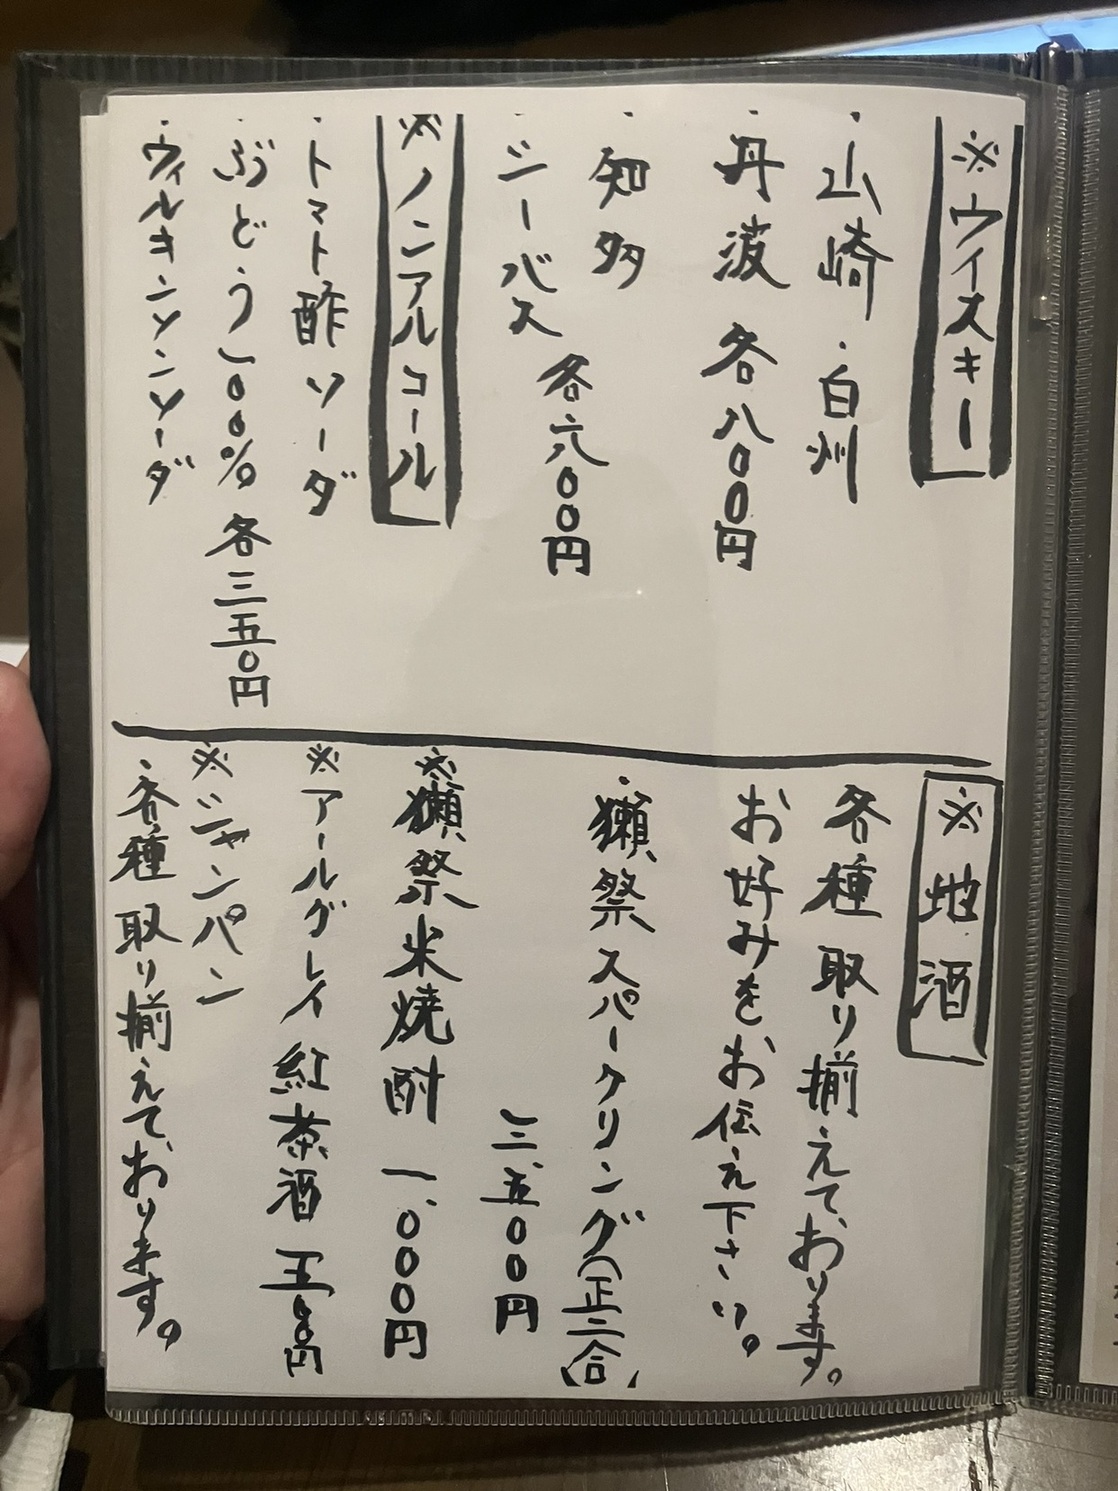 ※ウイスキー
・山崎・白州
・丹波 各八〇〇円
・知多
・シーバス 各六〇〇円
※ノンアルコール
・トマト酢ソーダ
・ぶどう100% 各三五〇円
・ウィルキンソンソーダ
※地酒
各種取り揃えております。
お好みをお伝え下さい。
・獺祭スパークリング(正二合)
三、五〇〇円
※獺祭米焼酎 一、〇〇〇円
※アールグレイ紅茶酒
※シャンパン
・各種取り揃えております。